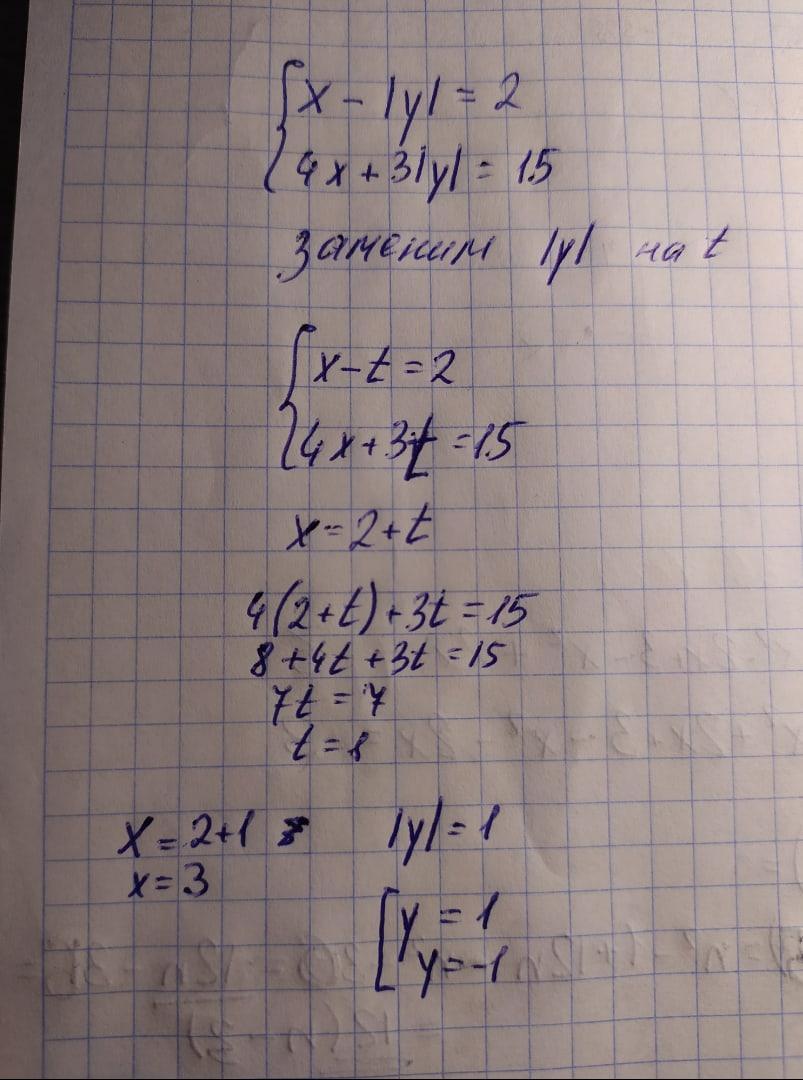 x - |y| = 2
4x + 3|y| = 15
Заменим |y| на t
x - t = 2
4x + 3t = 15
x = 2 + t
4(2 + t) + 3t = 15
8 + 4t + 3t = 15
7t = 7
t = 1
x = 2 + 1
x = 3
|y| = 1
y = 1
y = -1